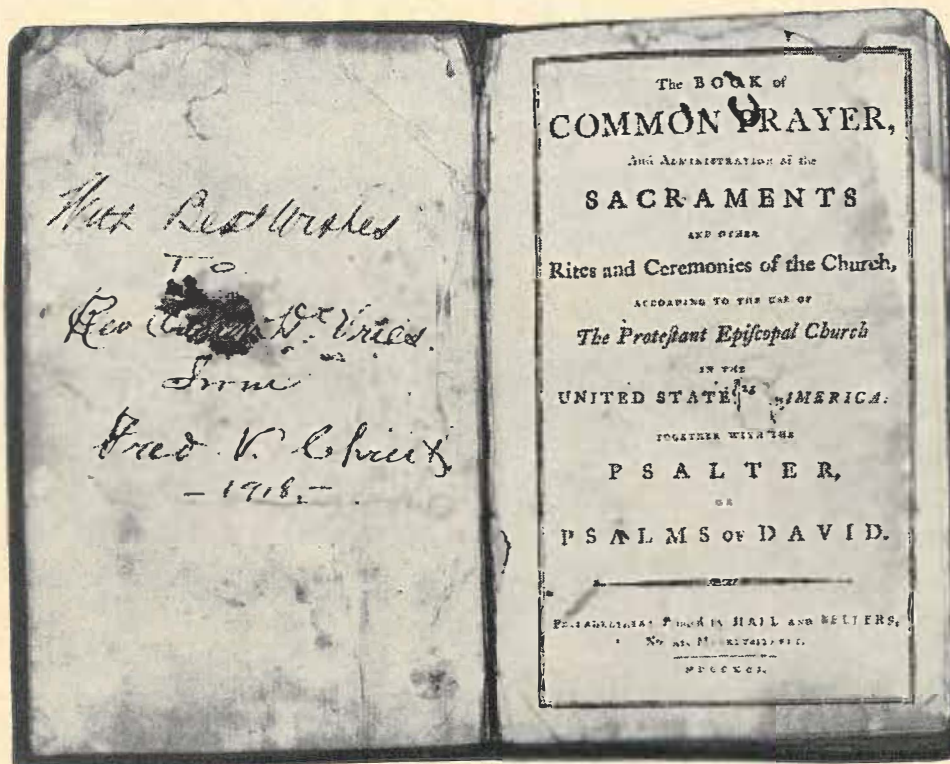 With Best Wishes
To
Rev De Vries.
From
Fred V. Christ
- 1918. -
The BOOK of
COMMON PRAYER,
And ADMINISTRATION of the
SACRAMENTS
AND OTHER
Rites and Ceremonies of the Church,
ACCORDING TO THE USE OF
The Proteſtant Epiſcopal Church
IN THE
UNITED STATES AMERICA:
TOGETHER WITH THE
PSALTER,
OR
PSALMS OF DAVID.
PHILADELPHIA: HALL AND SELLERS,
MDCCXCI.